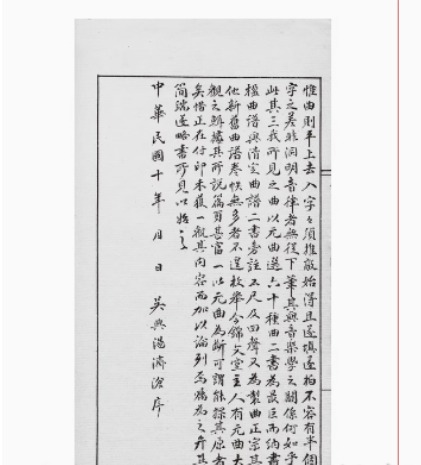 惟曲則平上去入字字須推敲始得且逐填逐拍不容有半個
字之差非洞明音律者無從下筆其與音樂學之關係何如乎
此其三我所見之曲以元曲選六十種曲二書為最巨而納書
楹曲譜與清宮曲譜二書旁註工尺及四聲又為製曲正宗其
他新舊曲譜卷帙無多者不遑枚舉今錦文堂主人有元曲大
觀之輯繹其所說篇頁甚富一以元曲為斷可謂能探其原者
矣惜正在付印未獲一觀其內容而加以論列焉為之弁其
簡端遂略書所見以始之
中華民國十年 月 日 吳興湯濟滄序